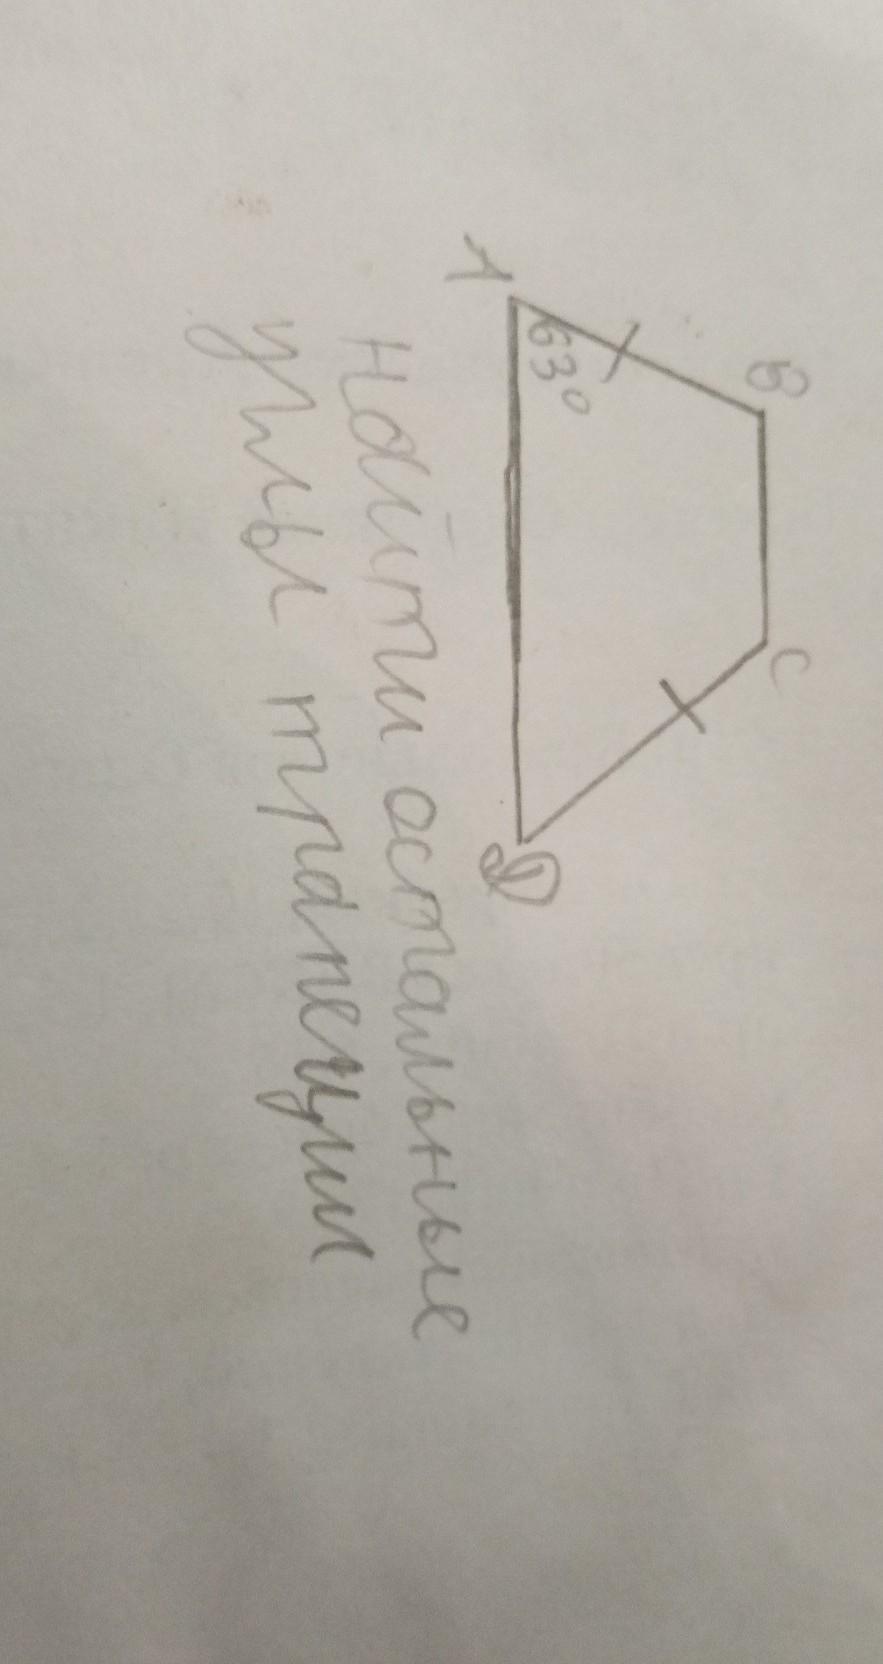 B
C
A
63°
D
Найти остальные
углы трапеции